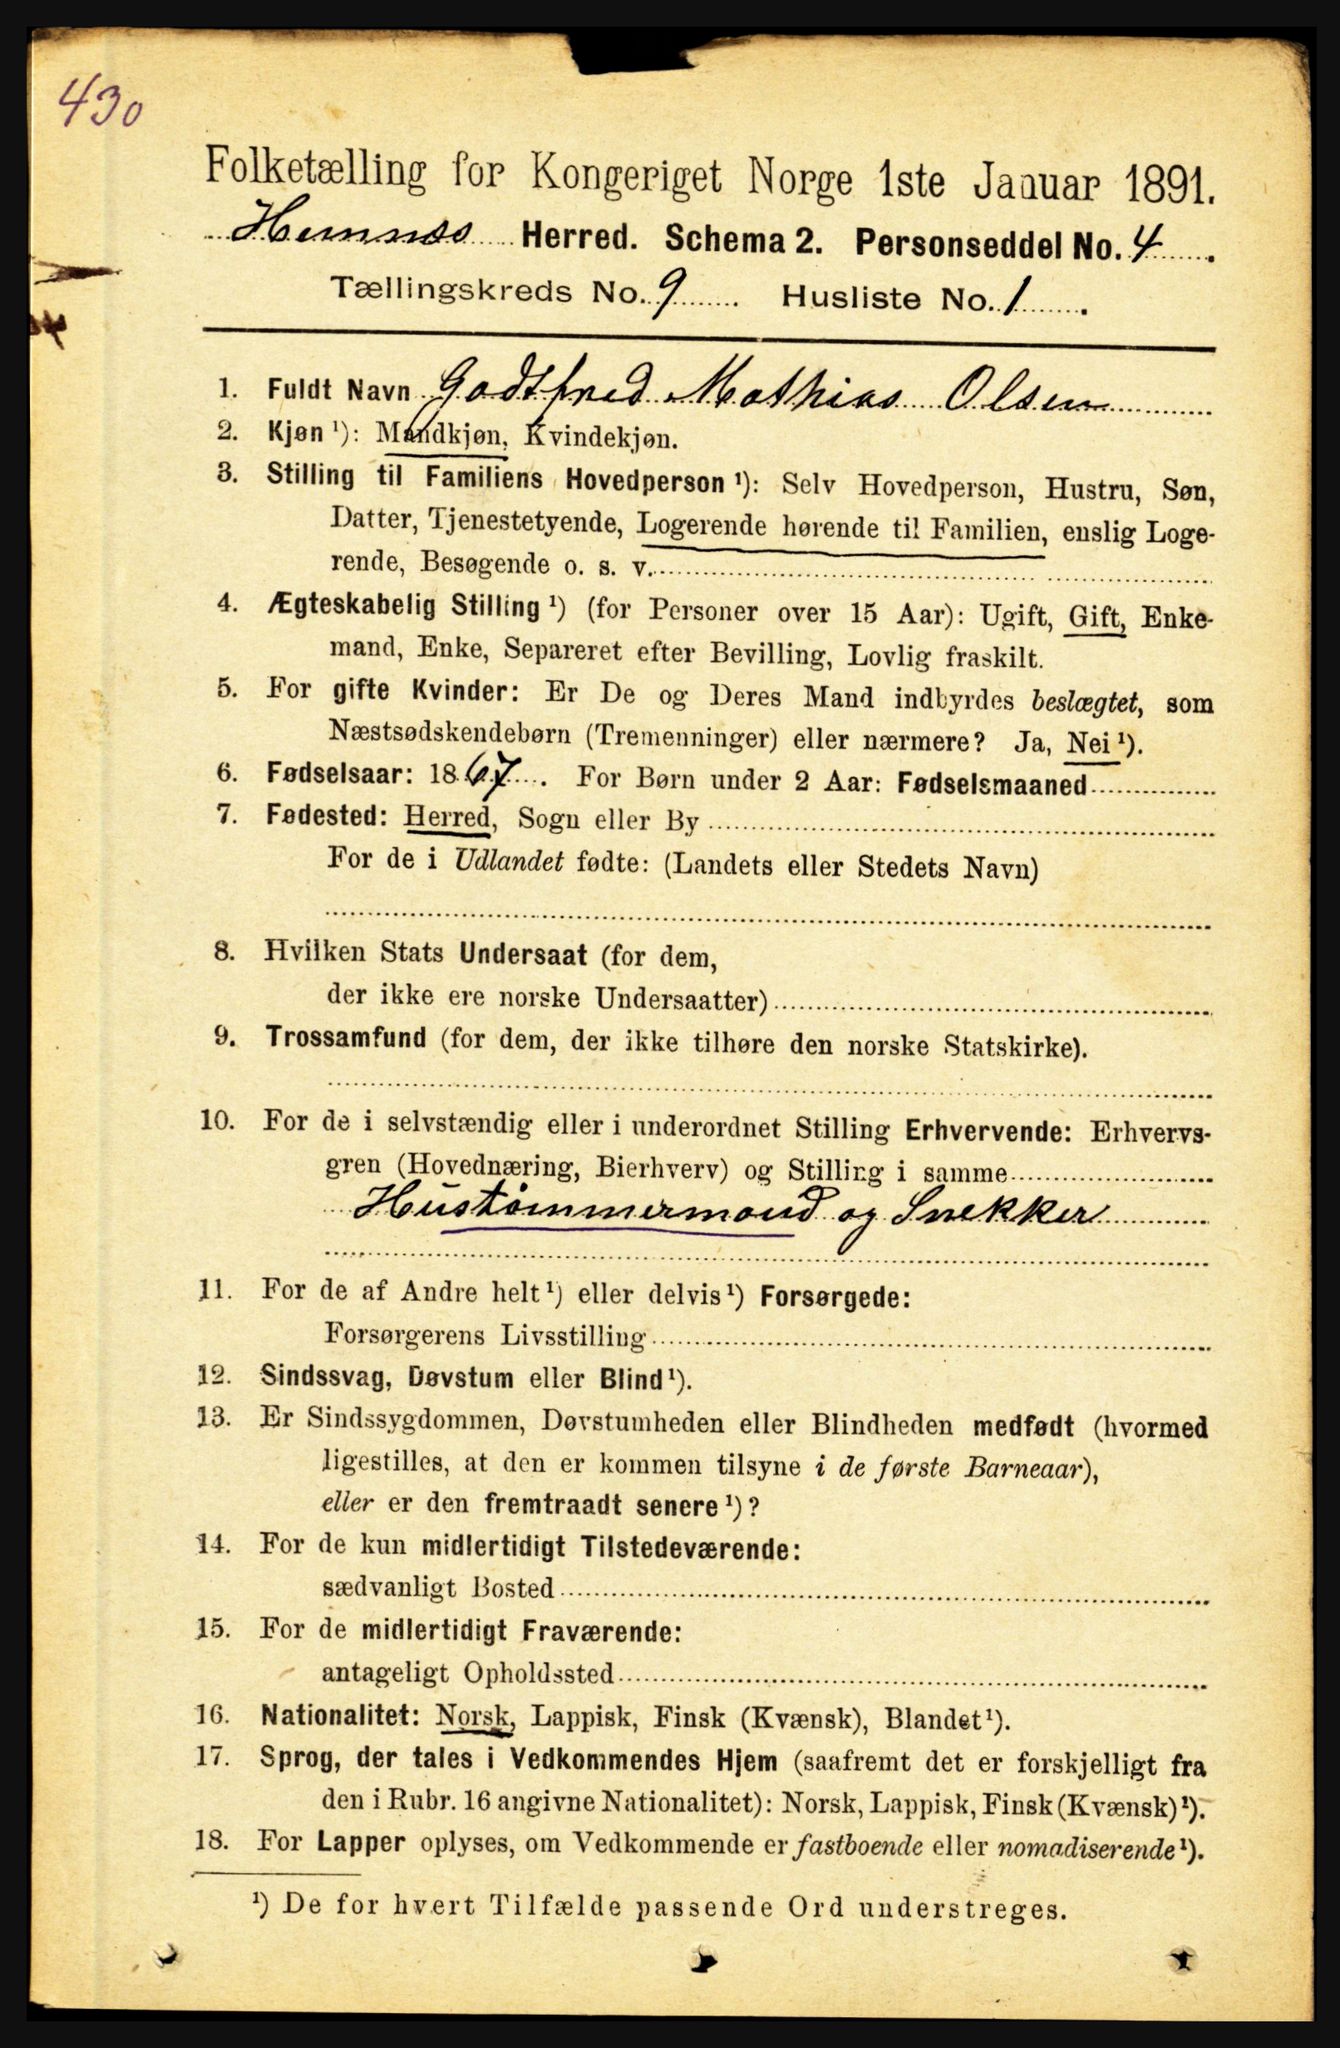 430
Folketælling for Kongeriget Norge 1ste Januar 1891.
Hemnæs Herred. Schema 2. Personseddel No. 4.
Tællingskreds No. 9. Husliste No. 1.
1. Fuldt Navn Godtfred Mathias Olsen
2. Kjøn ¹): Mandkjøn, Kvindekjøn.
3. Stilling til Familiens Hovedperson ¹): Selv Hovedperson, Hustru, Søn,
Datter, Tjenestetyende, Logerende hørende til Familien, enslig Loge-
rende, Besøgende o. s. v.
4. Ægteskabelig Stilling ¹) (for Personer over 15 Aar): Ugift, Gift, Enke-
mand, Enke, Separeret efter Bevilling, Lovlig fraskilt.
5. For gifte Kvinder: Er De og Deres Mand indbyrdes beslægtet, som
Næstsødskendebørn (Tremenninger) eller nærmere? Ja, Nei ¹).
6. Fødselsaar: 1867. For Børn under 2 Aar: Fødselsmaaned
7. Fødested: Herred, Sogn eller By
For de i Udlandet fødte: (Landets eller Stedets Navn)
8. Hvilken Stats Undersaat (for dem,
der ikke ere norske Undersaatter)
9. Trossamfund (for dem, der ikke tilhøre den norske Statskirke).
10. For de i selvstændig eller i underordnet Stilling Erhvervende: Erhvervs-
gren (Hovednæring, Bierhverv) og Stilling i samme
Hustømmermand og Snekker
11. For de af Andre helt ¹) eller delvis ¹) Forsørgede:
Forsørgerens Livsstilling
12. Sindssvag, Døvstum eller Blind ¹).
13. Er Sindssygdommen, Døvstumheden eller Blindheden medfødt (hvormed
ligestilles, at den er kommen tilsyne i de første Barneaar),
eller er den fremtraadt senere ¹)?
14. For de kun midlertidigt Tilstedeværende:
sædvanligt Bosted
15. For de midlertidigt Fraværende:
antageligt Opholdssted
16. Nationalitet: Norsk, Lappisk, Finsk (Kvænsk), Blandet ¹).
17. Sprog, der tales i Vedkommendes Hjem (saafremt det er forskjelligt fra
den i Rubr. 16 angivne Nationalitet): Norsk, Lappisk, Finsk (Kvænsk) ¹).
18. For Lapper oplyses, om Vedkommende er fastboende eller nomadiserende ¹).
¹) De for hvert Tilfælde passende Ord understreges.